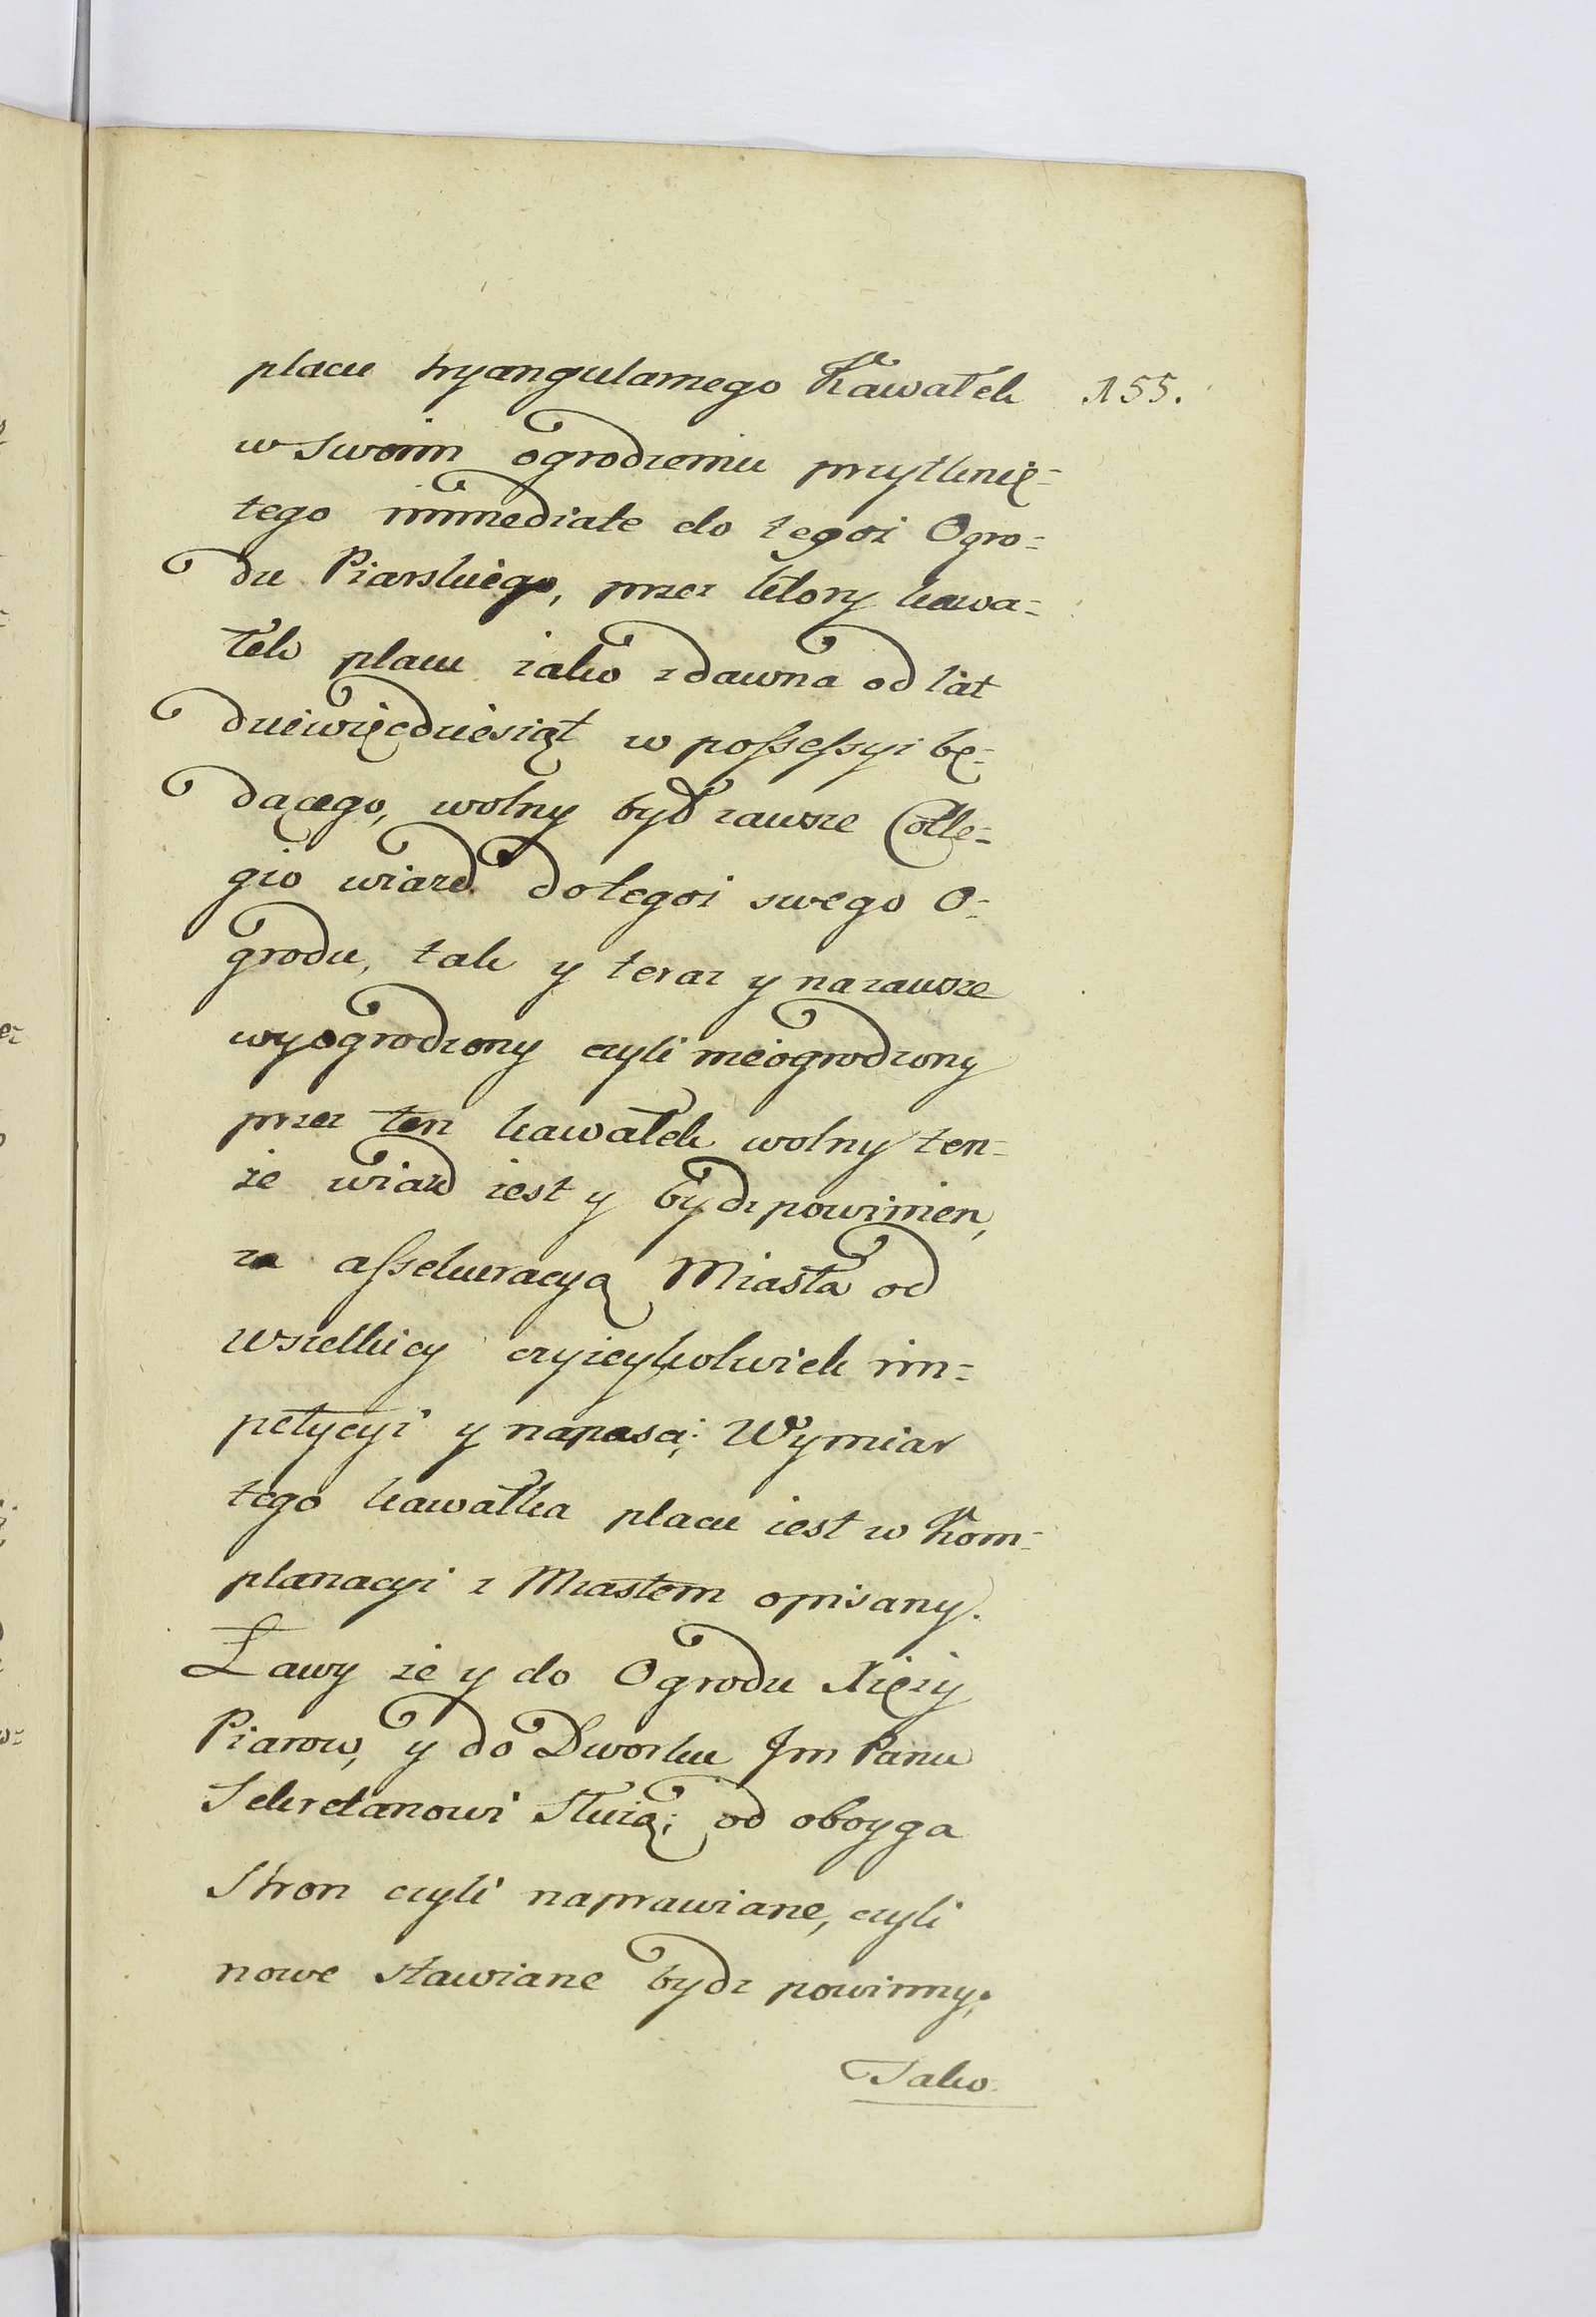 placu tryangularnego Kawałek 155.
w swoim ogrodzeniu przytknię-
tego immediate do tegoż Ogro-
du Piarskiego, przez ktory kawa-
łek placu iako zdawna od lat
dziewięcdziesiąt w possessyi bę-
dącego, wolny był zawsze Colle-
gio wiazd do tegoż swego O-
grodu, tak y teraz y na zawsze
wyogrodzony czyli nieogrodzony
przez ten kawałek wolny ten-
że wiazd iest y bydz powinien,
za assekuracyą Miasta od
wszelkicy czyicykolwiek im-
petycyi y napasci; Wymiar
tego kawałka placu iest w Kom-
planacyi z Miastem opisany.
Ławy że y do Ogrodu Xięży
Piarow, y do Dworku Jm Panu
Sekretarzowi Służą; od oboyga
Stron czyli naprawiane, czyli
nowe stawiane bydz powinny;
Jako